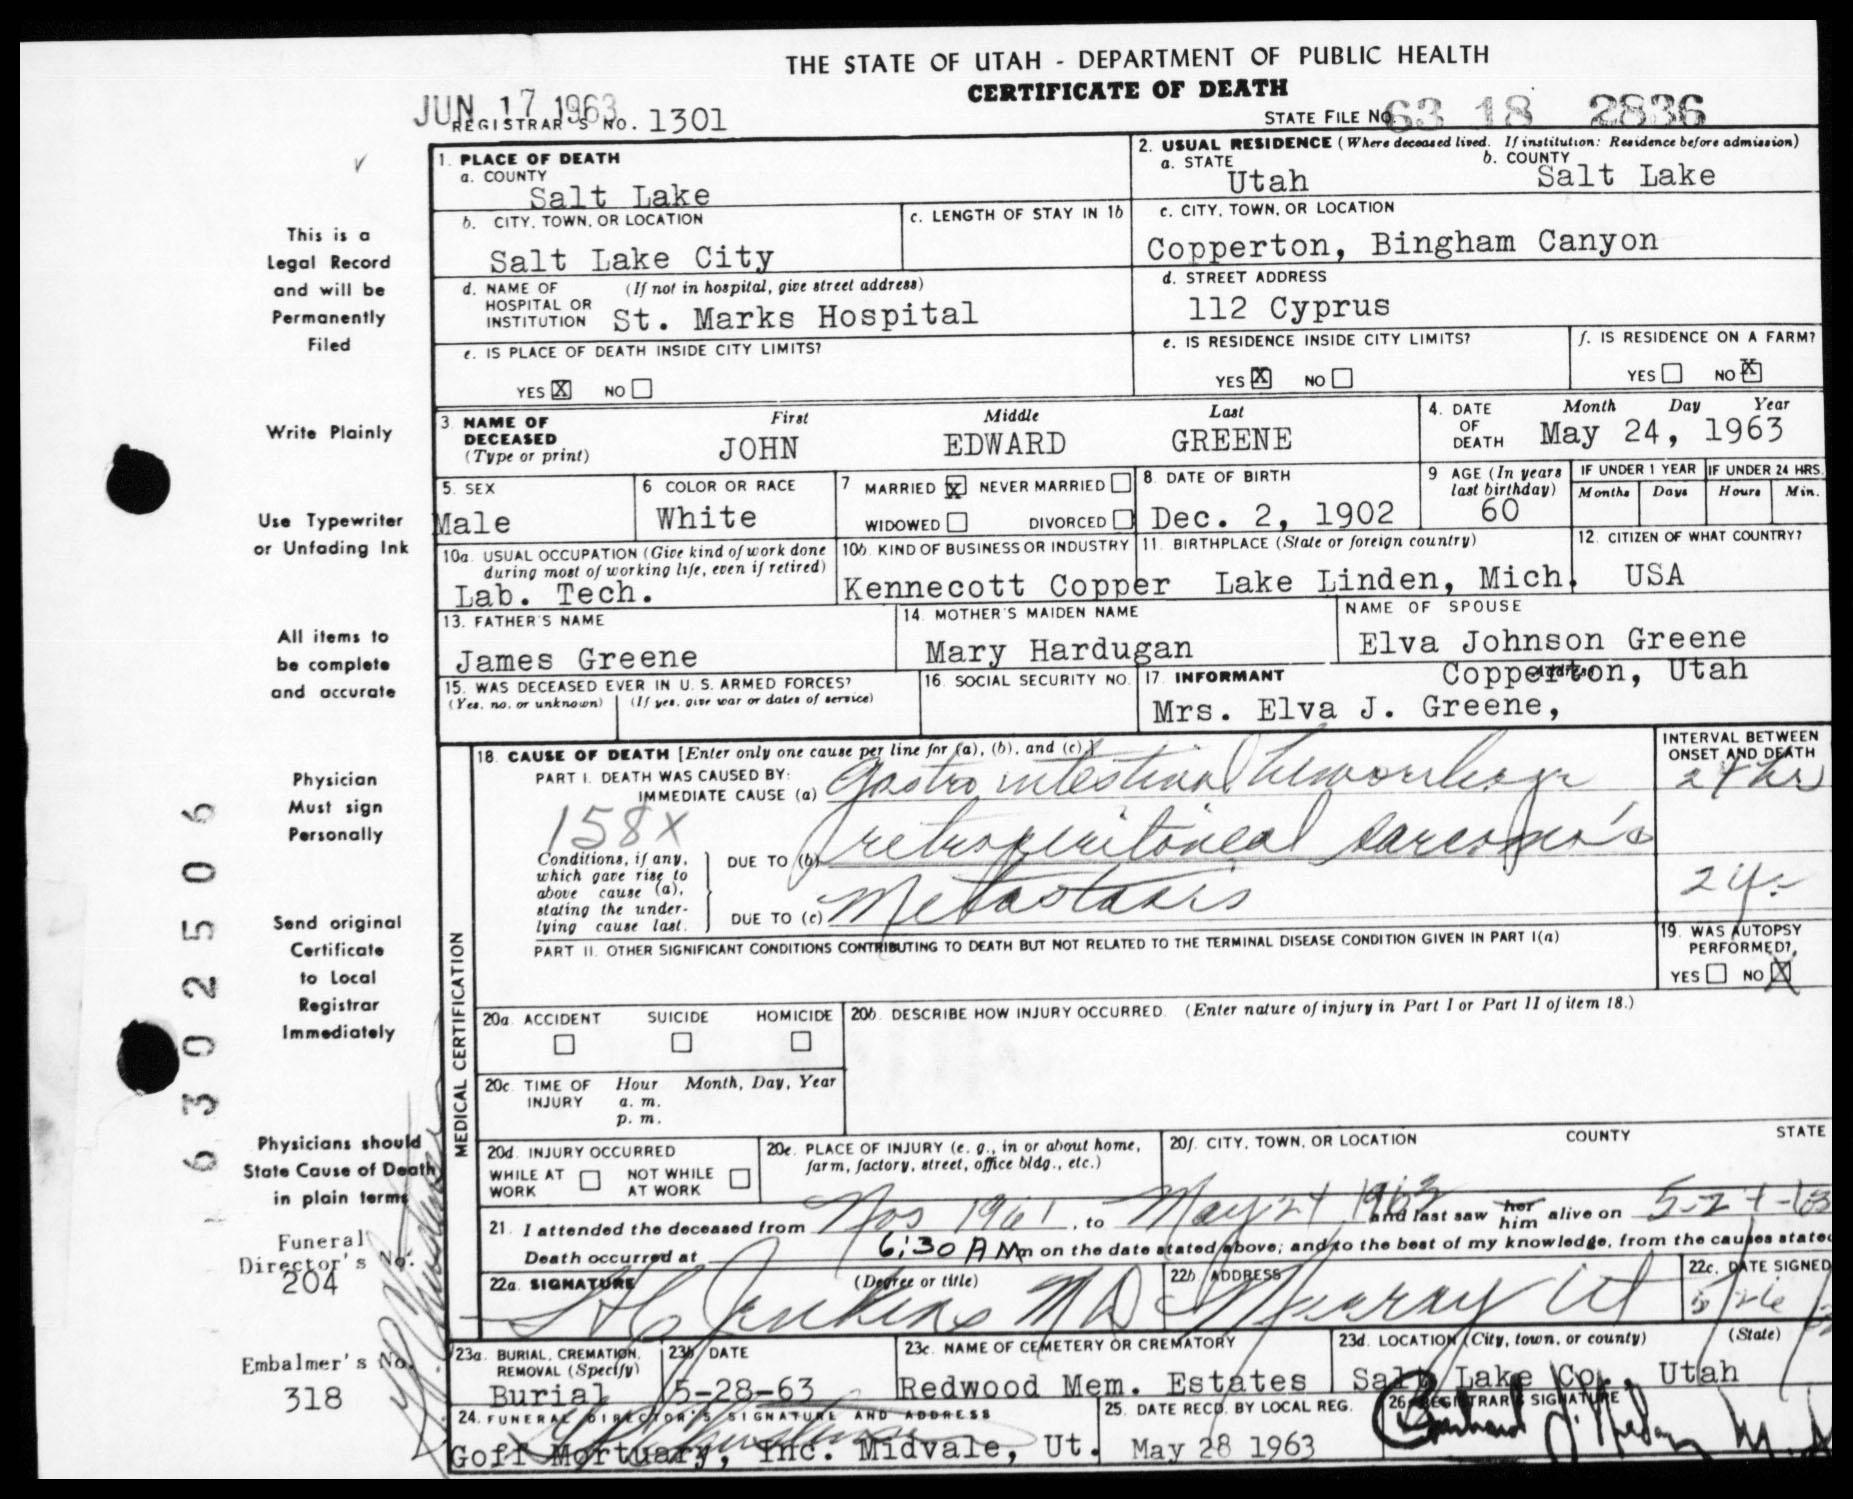 THE STATE OF UTAH - DEPARTMENT OF PUBLIC HEALTH
CERTIFICATE OF DEATH
JUN 17 1963
REGISTRAR'S NO. 1301
STATE FILE NO. 63 18 2836
This is a
Legal Record
and will be
Permanently
Filed
Write Plainly
Use Typewriter
or Unfading Ink
All items to
be complete
and accurate
Physician
Must sign
Personally
Send original
Certificate
to Local
Registrar
Immediately
Physicians should
State Cause of Death
in plain terms
Funeral
Director's No.
204
Embalmer's No.
318
6302506
1. PLACE OF DEATH
a. COUNTY
Salt Lake
2. USUAL RESIDENCE (Where deceased lived. If institution: Residence before admission)
a. STATE
Utah
b. COUNTY
Salt Lake
b. CITY, TOWN, OR LOCATION
Salt Lake City
c. LENGTH OF STAY IN 1b
c. CITY, TOWN, OR LOCATION
Copperton, Bingham Canyon
d. NAME OF HOSPITAL OR INSTITUTION (If not in hospital, give street address)
St. Marks Hospital
d. STREET ADDRESS
112 Cyprus
e. IS PLACE OF DEATH INSIDE CITY LIMITS?
YES X NO
e. IS RESIDENCE INSIDE CITY LIMITS?
YES X NO
f. IS RESIDENCE ON A FARM?
YES NO X
3. NAME OF DECEASED (Type or print)
First Middle Last
JOHN EDWARD GREENE
4. DATE OF DEATH
Month Day Year
May 24, 1963
5. SEX
Male
6 COLOR OR RACE
White
7 MARRIED X NEVER MARRIED
WIDOWED DIVORCED
8. DATE OF BIRTH
Dec. 2, 1902
9 AGE (In years last birthday)
60
IF UNDER 1 YEAR
Months Days
IF UNDER 24 HRS.
Hours Min.
10a. USUAL OCCUPATION (Give kind of work done during most of working life, even if retired)
Lab. Tech.
10b. KIND OF BUSINESS OR INDUSTRY
Kennecott Copper
11. BIRTHPLACE (State or foreign country)
Lake Linden, Mich.
12. CITIZEN OF WHAT COUNTRY?
USA
13. FATHER'S NAME
James Greene
14. MOTHER'S MAIDEN NAME
Mary Hardugan
NAME OF SPOUSE
Elva Johnson Greene
15. WAS DECEASED EVER IN U. S. ARMED FORCES?
(Yes, no, or unknown) (If yes, give war or dates of service)
16. SOCIAL SECURITY NO.
17. INFORMANT Address
Copperton, Utah
Mrs. Elva J. Greene,
MEDICAL CERTIFICATION
18. CAUSE OF DEATH [Enter only one cause per line for (a), (b), and (c).]
INTERVAL BETWEEN ONSET AND DEATH
PART I. DEATH WAS CAUSED BY:
IMMEDIATE CAUSE (a) Gastro intestinal hemorrhage 24 hrs
158X
Conditions, if any,
which gave rise to
above cause (a),
stating the under-
lying cause last.
DUE TO (b) retroperitoneal sarcoma's
DUE TO (c) Metastasis
PART II. OTHER SIGNIFICANT CONDITIONS CONTRIBUTING TO DEATH BUT NOT RELATED TO THE TERMINAL DISEASE CONDITION GIVEN IN PART I(a)
19. WAS AUTOPSY PERFORMED?
YES NO X
20a. ACCIDENT SUICIDE HOMICIDE
20b. DESCRIBE HOW INJURY OCCURRED. (Enter nature of injury in Part I or Part II of item 18.)
20c. TIME OF INJURY Hour Month, Day, Year
a. m.
p. m.
20d. INJURY OCCURRED
WHILE AT WORK NOT WHILE AT WORK
20e. PLACE OF INJURY (e. g., in or about home, farm, factory, street, office bldg., etc.)
20f. CITY, TOWN, OR LOCATION COUNTY STATE
21. I attended the deceased from Nov 1961, to May 24 1963 and last saw her him alive on 5-24-63
Death occurred at 6:30 A M m on the date stated above; and to the best of my knowledge, from the causes stated
22a. SIGNATURE (Degree or title)
Jenkins MD
22b. ADDRESS
Murray Ut
22c. DATE SIGNED
23a. BURIAL, CREMATION, REMOVAL (Specify)
Burial
23b. DATE
5-28-63
23c. NAME OF CEMETERY OR CREMATORY
Redwood Mem. Estates
23d. LOCATION (City, town, or county) (State)
Salt Lake Co., Utah
24. FUNERAL DIRECTOR'S SIGNATURE AND ADDRESS
Goff Mortuary, Inc. Midvale, Ut.
25. DATE RECD. BY LOCAL REG.
May 28 1963
26. REGISTRAR'S SIGNATURE